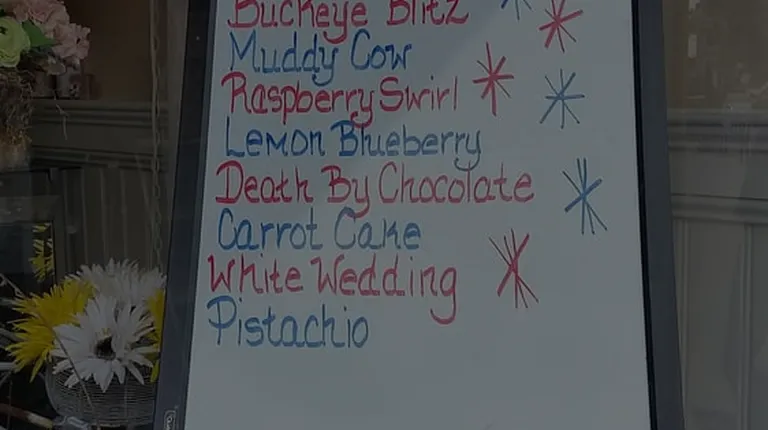 Buckeye Blitz
Muddy Cow
Raspberry Swirl
Lemon Blueberry
Death By Chocolate
Carrot Cake
White Wedding
Pistachio